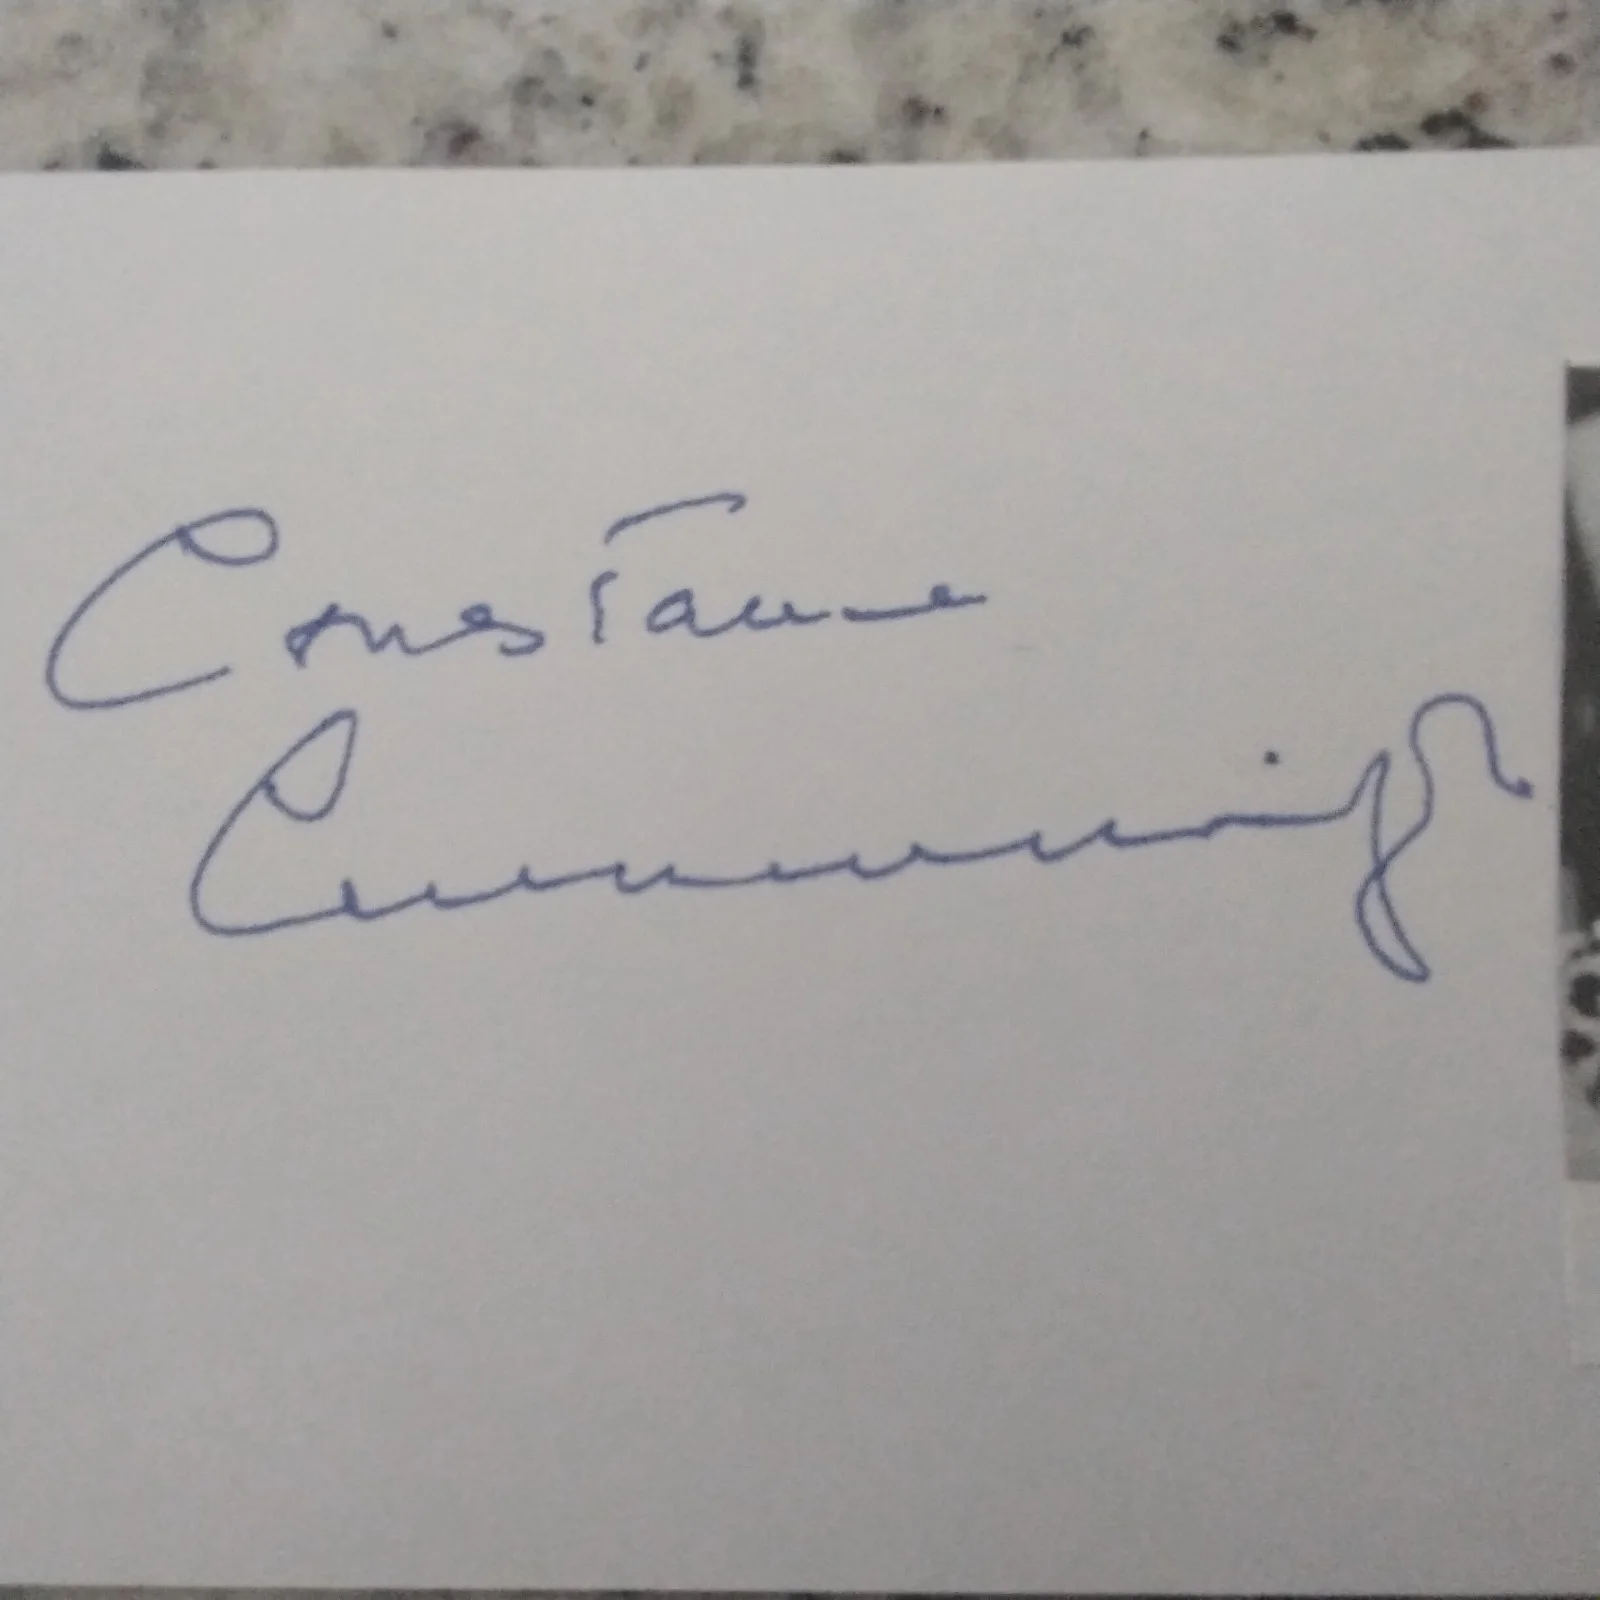 Constance
Cummings